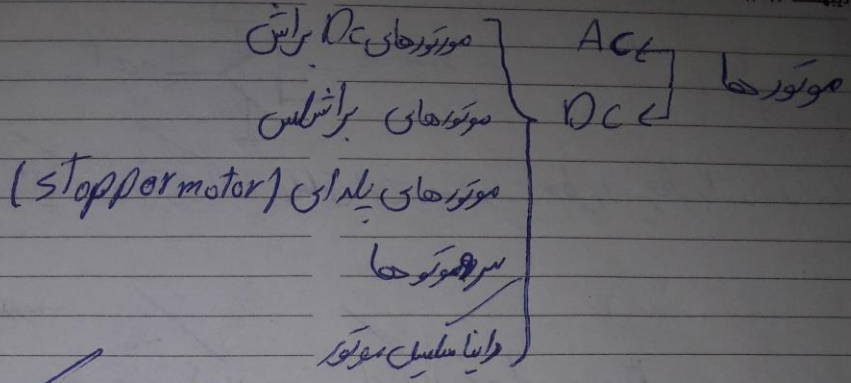 موتورها
AC
DC
موتورهای DC براش
موتورهای براشلس
موتورهای پله ای (stoppermotor)
سروموتورها
داینامیکسل موتور